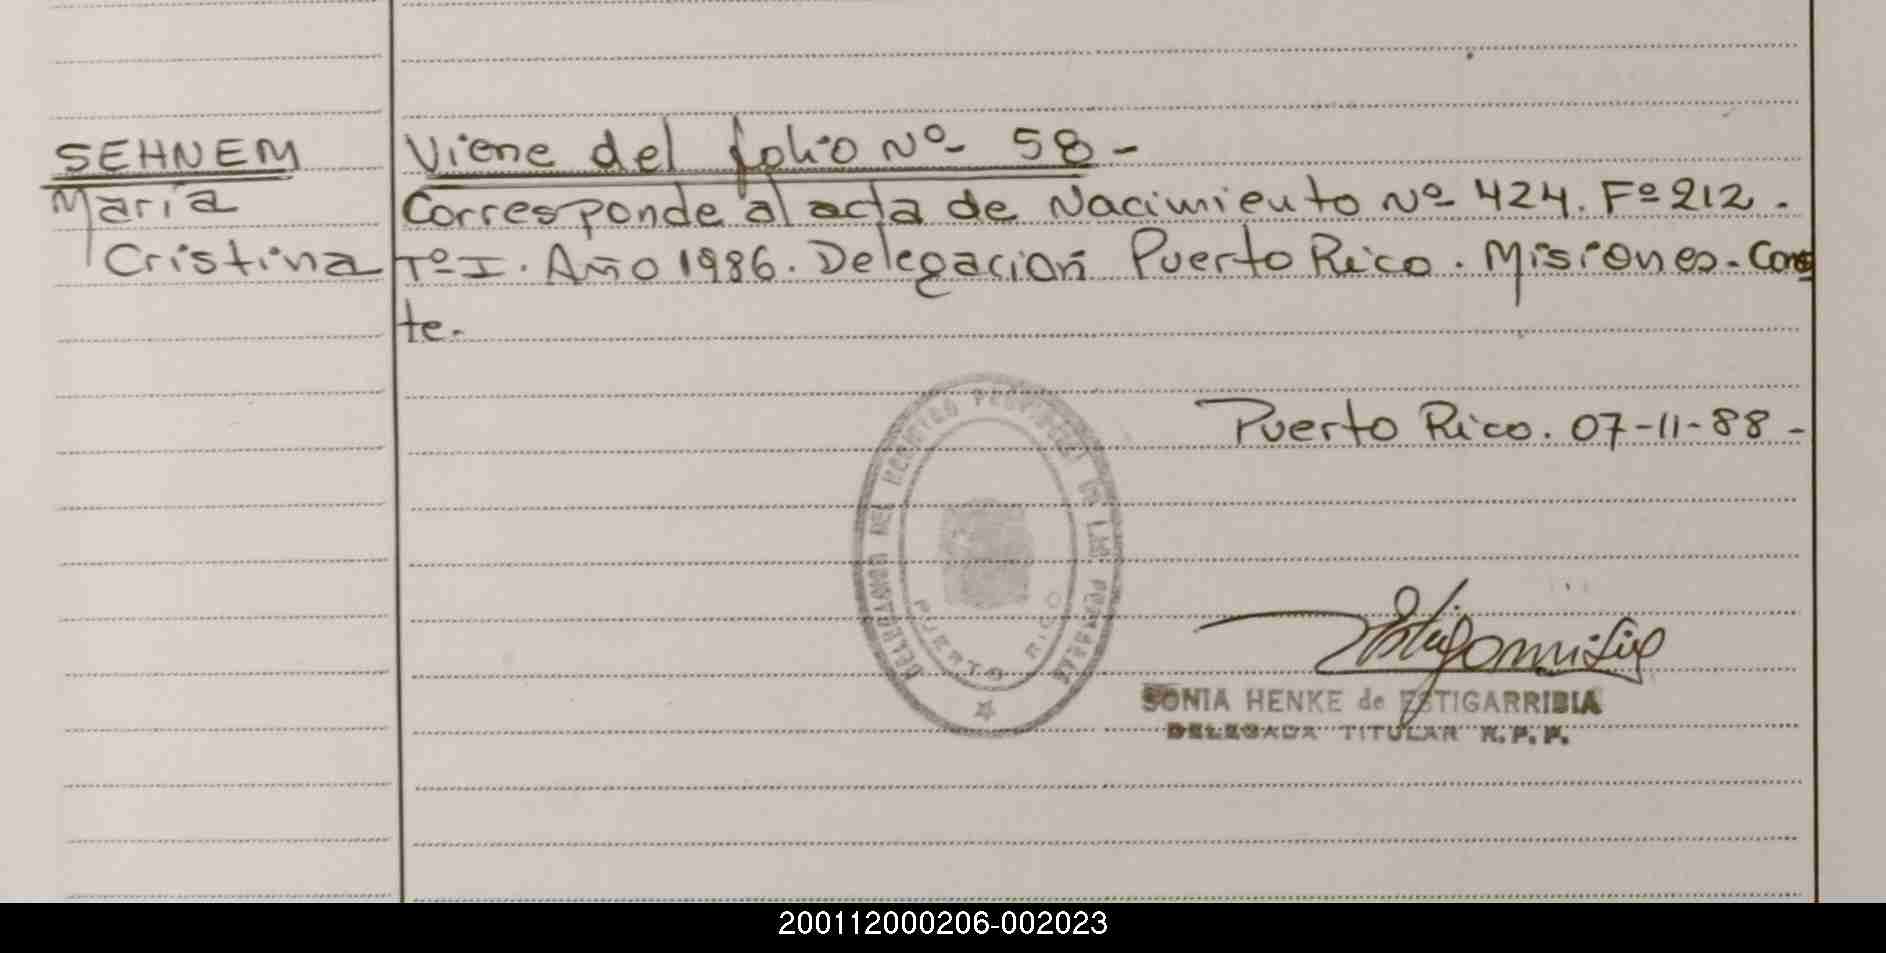 SEHNEM
Maria
Cristina
Viene del folio Nº 58-
Corresponde al acta de Nacimiento Nº 424. Fº 212.
Tº I. Año 1986. Delegación Puerto Rico. Misiones. Cons
te.
Puerto Rico. 07-11-88-
DELEGADO DEL REGISTRO PROVINCIAL DE LAS PERSONAS
PUERTO RICO
SONIA HENKE de ESTIGARRIBIA
DELEGADA TITULAR R.P.P.
200112000206-002023